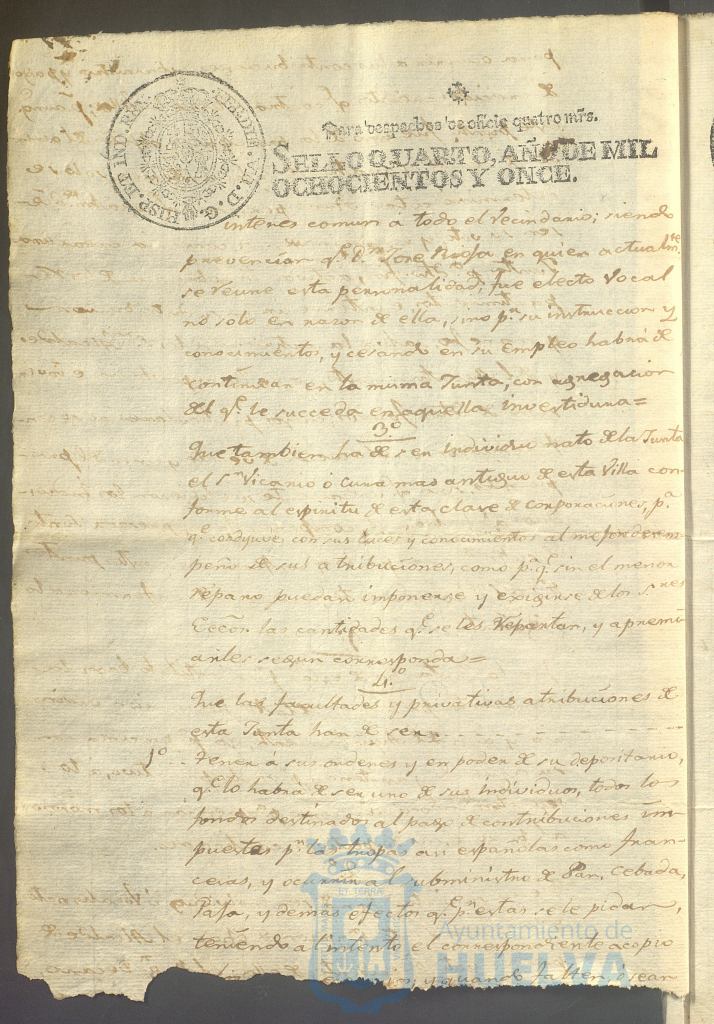 FERDIN. VII. D. G. HISP. ET IND. REX
Para despachos de oficio quatro mrs.
SELLO QUARTO, AÑO DE MIL
OCHOCIENTOS Y ONCE.
interes comun á todo el Vecindario; siendo
prevencion qᵉ. Dⁿ Jose en quien actualmᵗᵉ
se reune esta personalidad, fue electo Vocal
no solo en razon de ella, sino pʳ su instruccion y
conocimientos, y cesando en su empleo habrá de
continuar en la misma Junta, con agregacion
del qᵉ. le succeda en aquella investidura=
3.º
Que tambien ha de ser individuo nato de la Junta
el Sʳ Vicario ó Cura mas antiguo de esta Villa con-
forme al espiritu de esta clase de corporaciones, pᵃ
qᵉ. coadyuve con sus luces y conocimientos al mejor desem-
peño de sus atribuciones, como pᵃ qᵉ. sin el menor
reparo puedan imponerse y exigirse de los Sʳᵉˢ
Eccos. las cantidades qᵉ. se les repartan, y apremi-
arles segun corresponda=
4.º
Que las facultades y privativas atribuciones de
esta Junta han de ser
1º.. tener á sus ordenes y en poder de su depositario,
qᵉ. lo habrá de ser uno de sus individuos, todos los
fondos destinados al pago de contribuciones im-
puestas pʳ las tropas asi españolas como fran-
cesas, y ocurrir al subministro de Pan, Cebada,
Paja, y demas efectos qᵉ. pʳ estas se le pidan,
teniendo al intento el correspondiente acopio
y quando falten ó sean
Ayuntamiento de
HUELVA